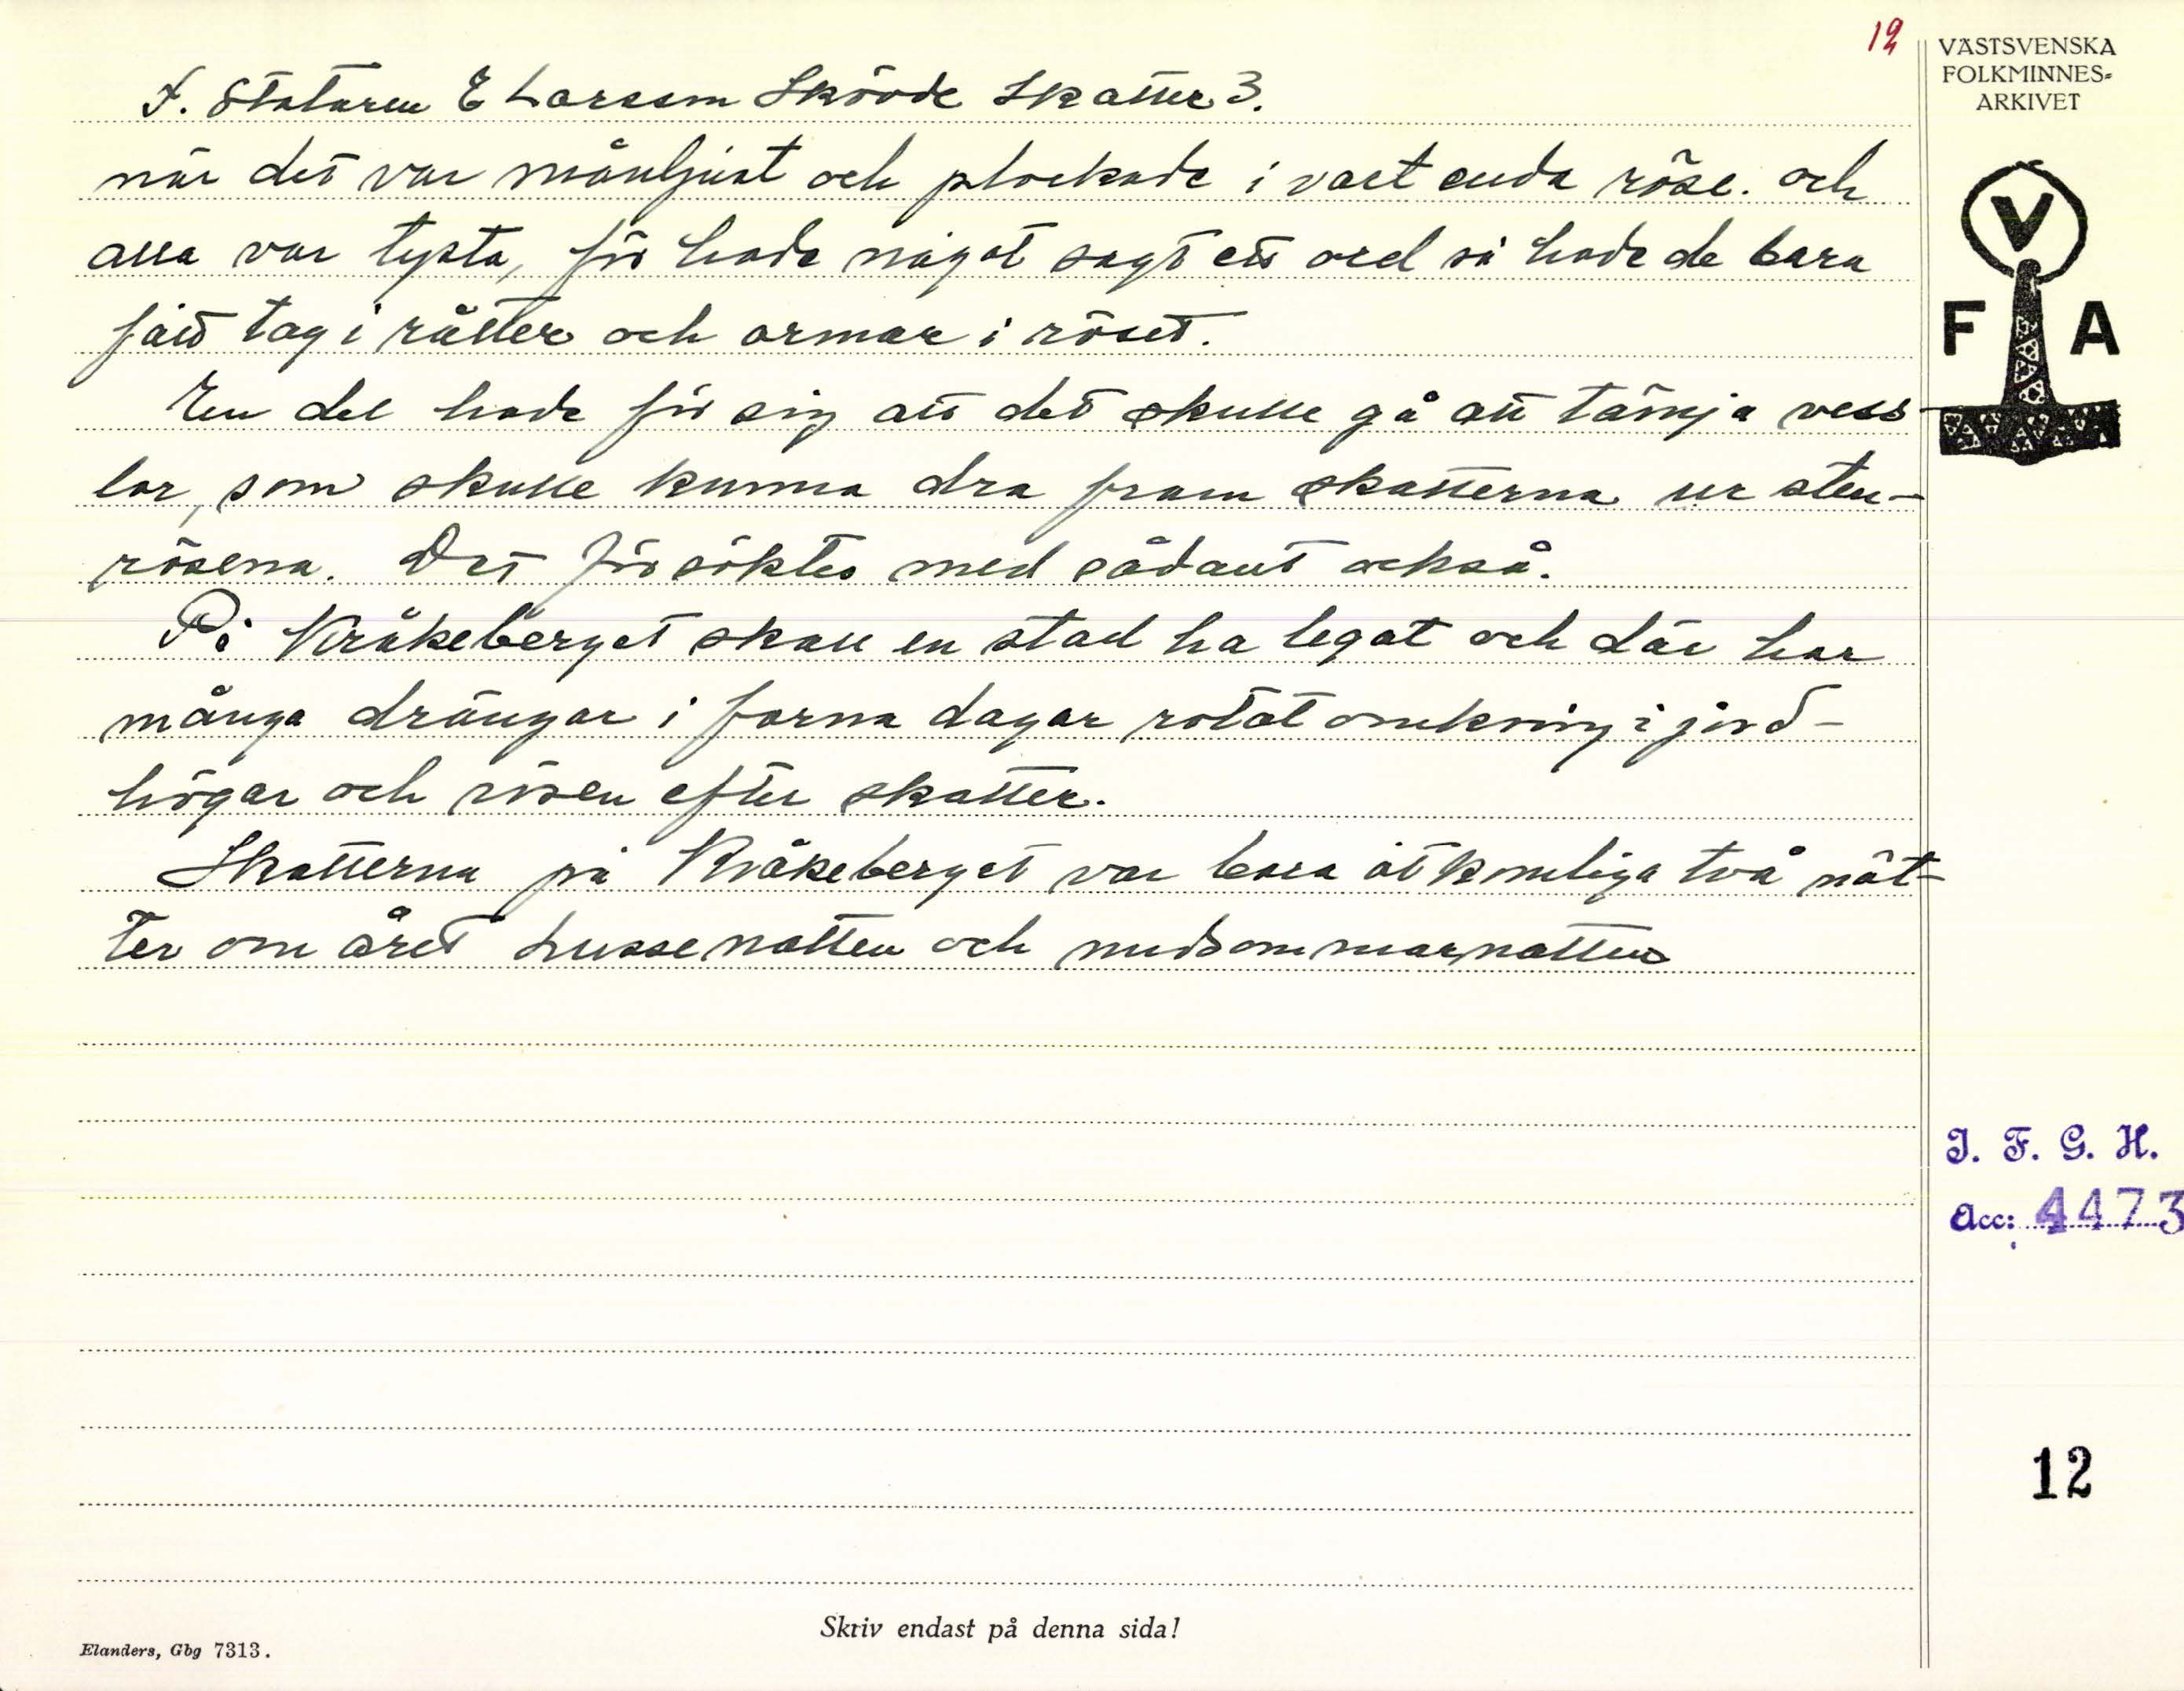 12
VÄSTSVENSKA
FOLKMINNES=
ARKIVET
F. Stataren E Larsson Skövde Skatter 3.
när det var månljust och plockade i vart enda röse. och
alla var tysta, för hade något sagt ett ord så hade de bara
fått tag i råtter och ormar i röset.
En del hade för sig att det skulle gå att tämja vess-
lor, som skulle kunna dra fram skatterna ur sten-
rösena. Det försöktes med sådant också.
På Kråkeberget skall en stad ha legat och där har
många drängar i forna dagar rotat omkring i jord-
högar och rösen efter skatter.
Skatterna på Kråkeberget var bara åtkomliga två nät-
ter om året Lussenatten och midsommarnatten
V
F A
I. F. G. H.
Acc: 4473
12
Skriv endast på denna sida!
Elanders, Gbg 7313.